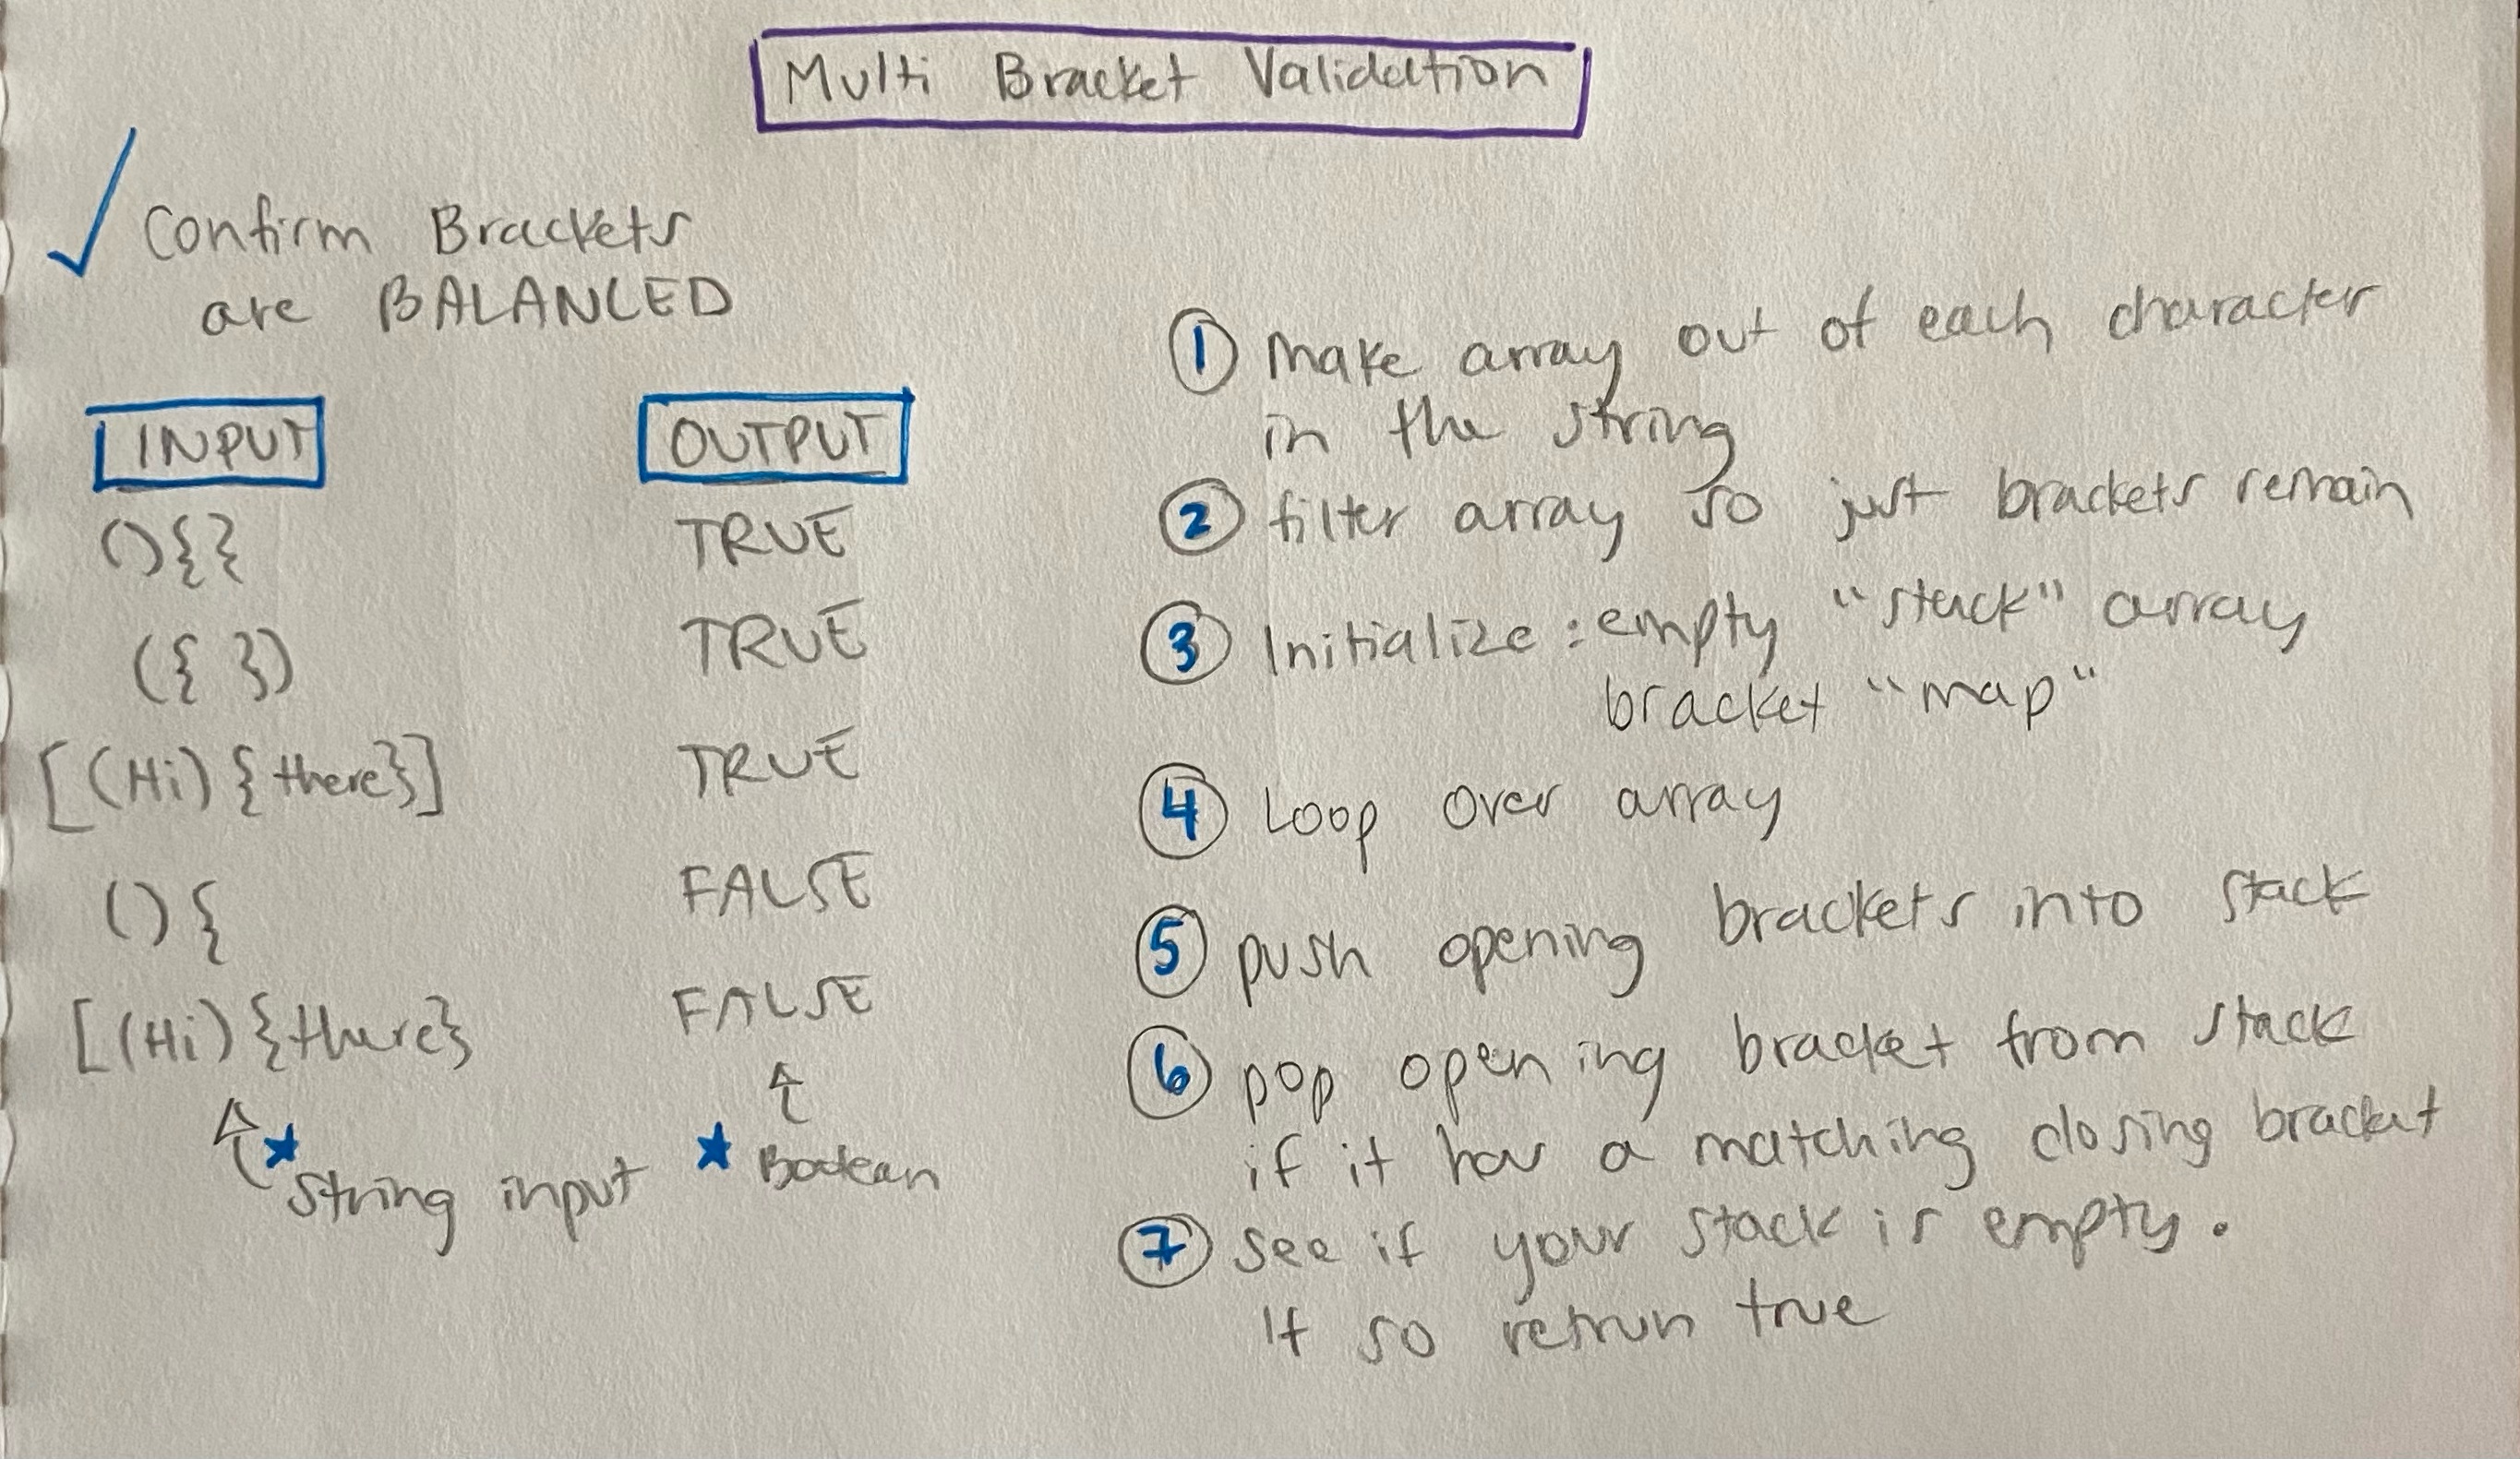 Multi Bracket Validation
Confirm Brackets
are BALANCED
INPUT OUTPUT
(){} TRUE
({ }) TRUE
[(Hi){there}] TRUE
(){ FALSE
[(Hi){there} FALSE
String input Boolean
1 make array out of each character
in the string
2 filter array so just brackets remain
3 Initialize: empty "stack" array
bracket "map"
4 Loop over array
5 push opening brackets into stack
6 pop opening bracket from stack
if it has a matching closing bracket
7 see if your stack is empty.
If so retrun true